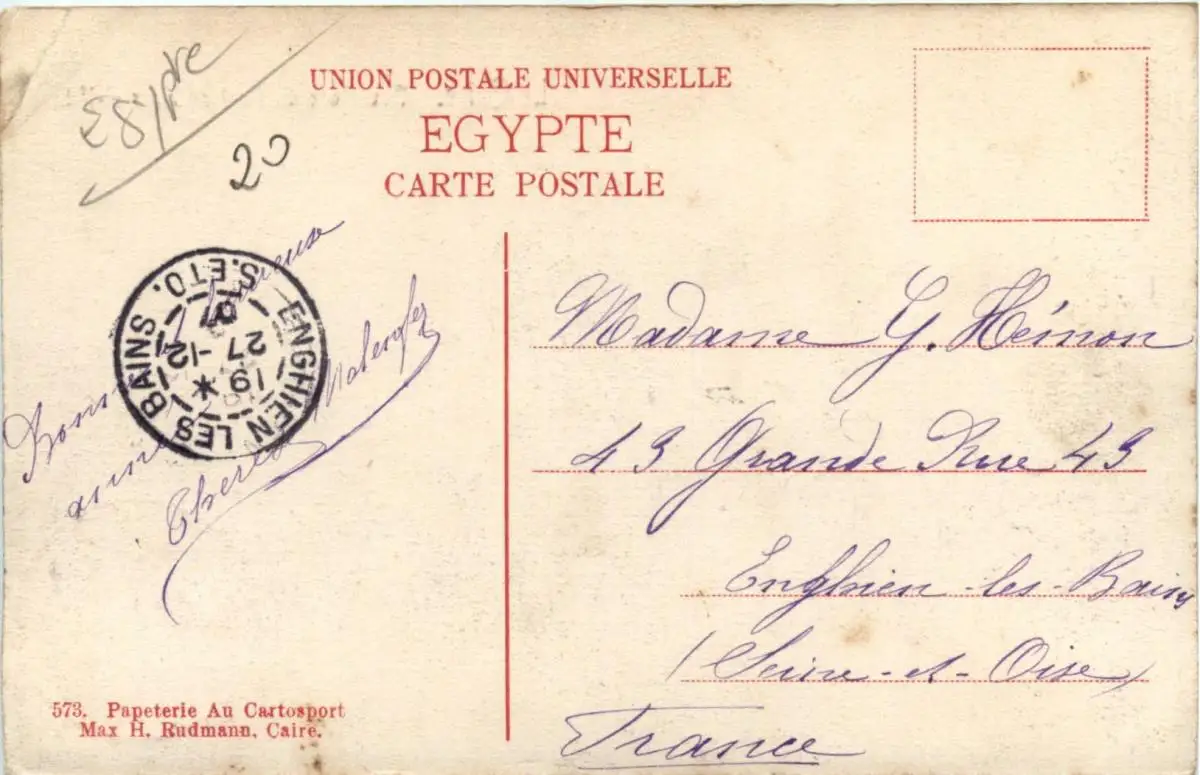 Egypte
20
UNION POSTALE UNIVERSELLE
EGYPTE
CARTE POSTALE
ENGHIEN LES BAINS
S. ET O.
19 *
27 -12
07
Bonne et heureuse
année
Madame G. Hémon
43 Grande Rue 43
Enghien-les-Bains
(Seine-et-Oise)
France
573. Papeterie Au Cartosport
Max H. Rudmann, Caire.